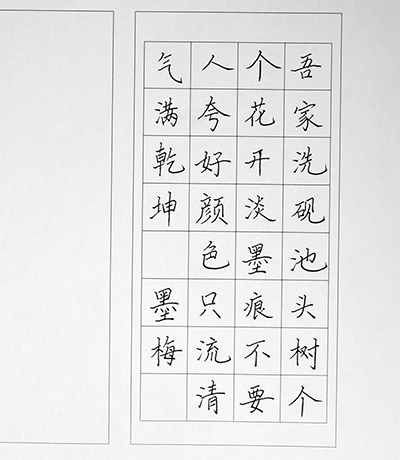 吾家洗砚池头树个
个花开淡墨痕不要
人夸好颜色只流清
气满乾坤
墨梅